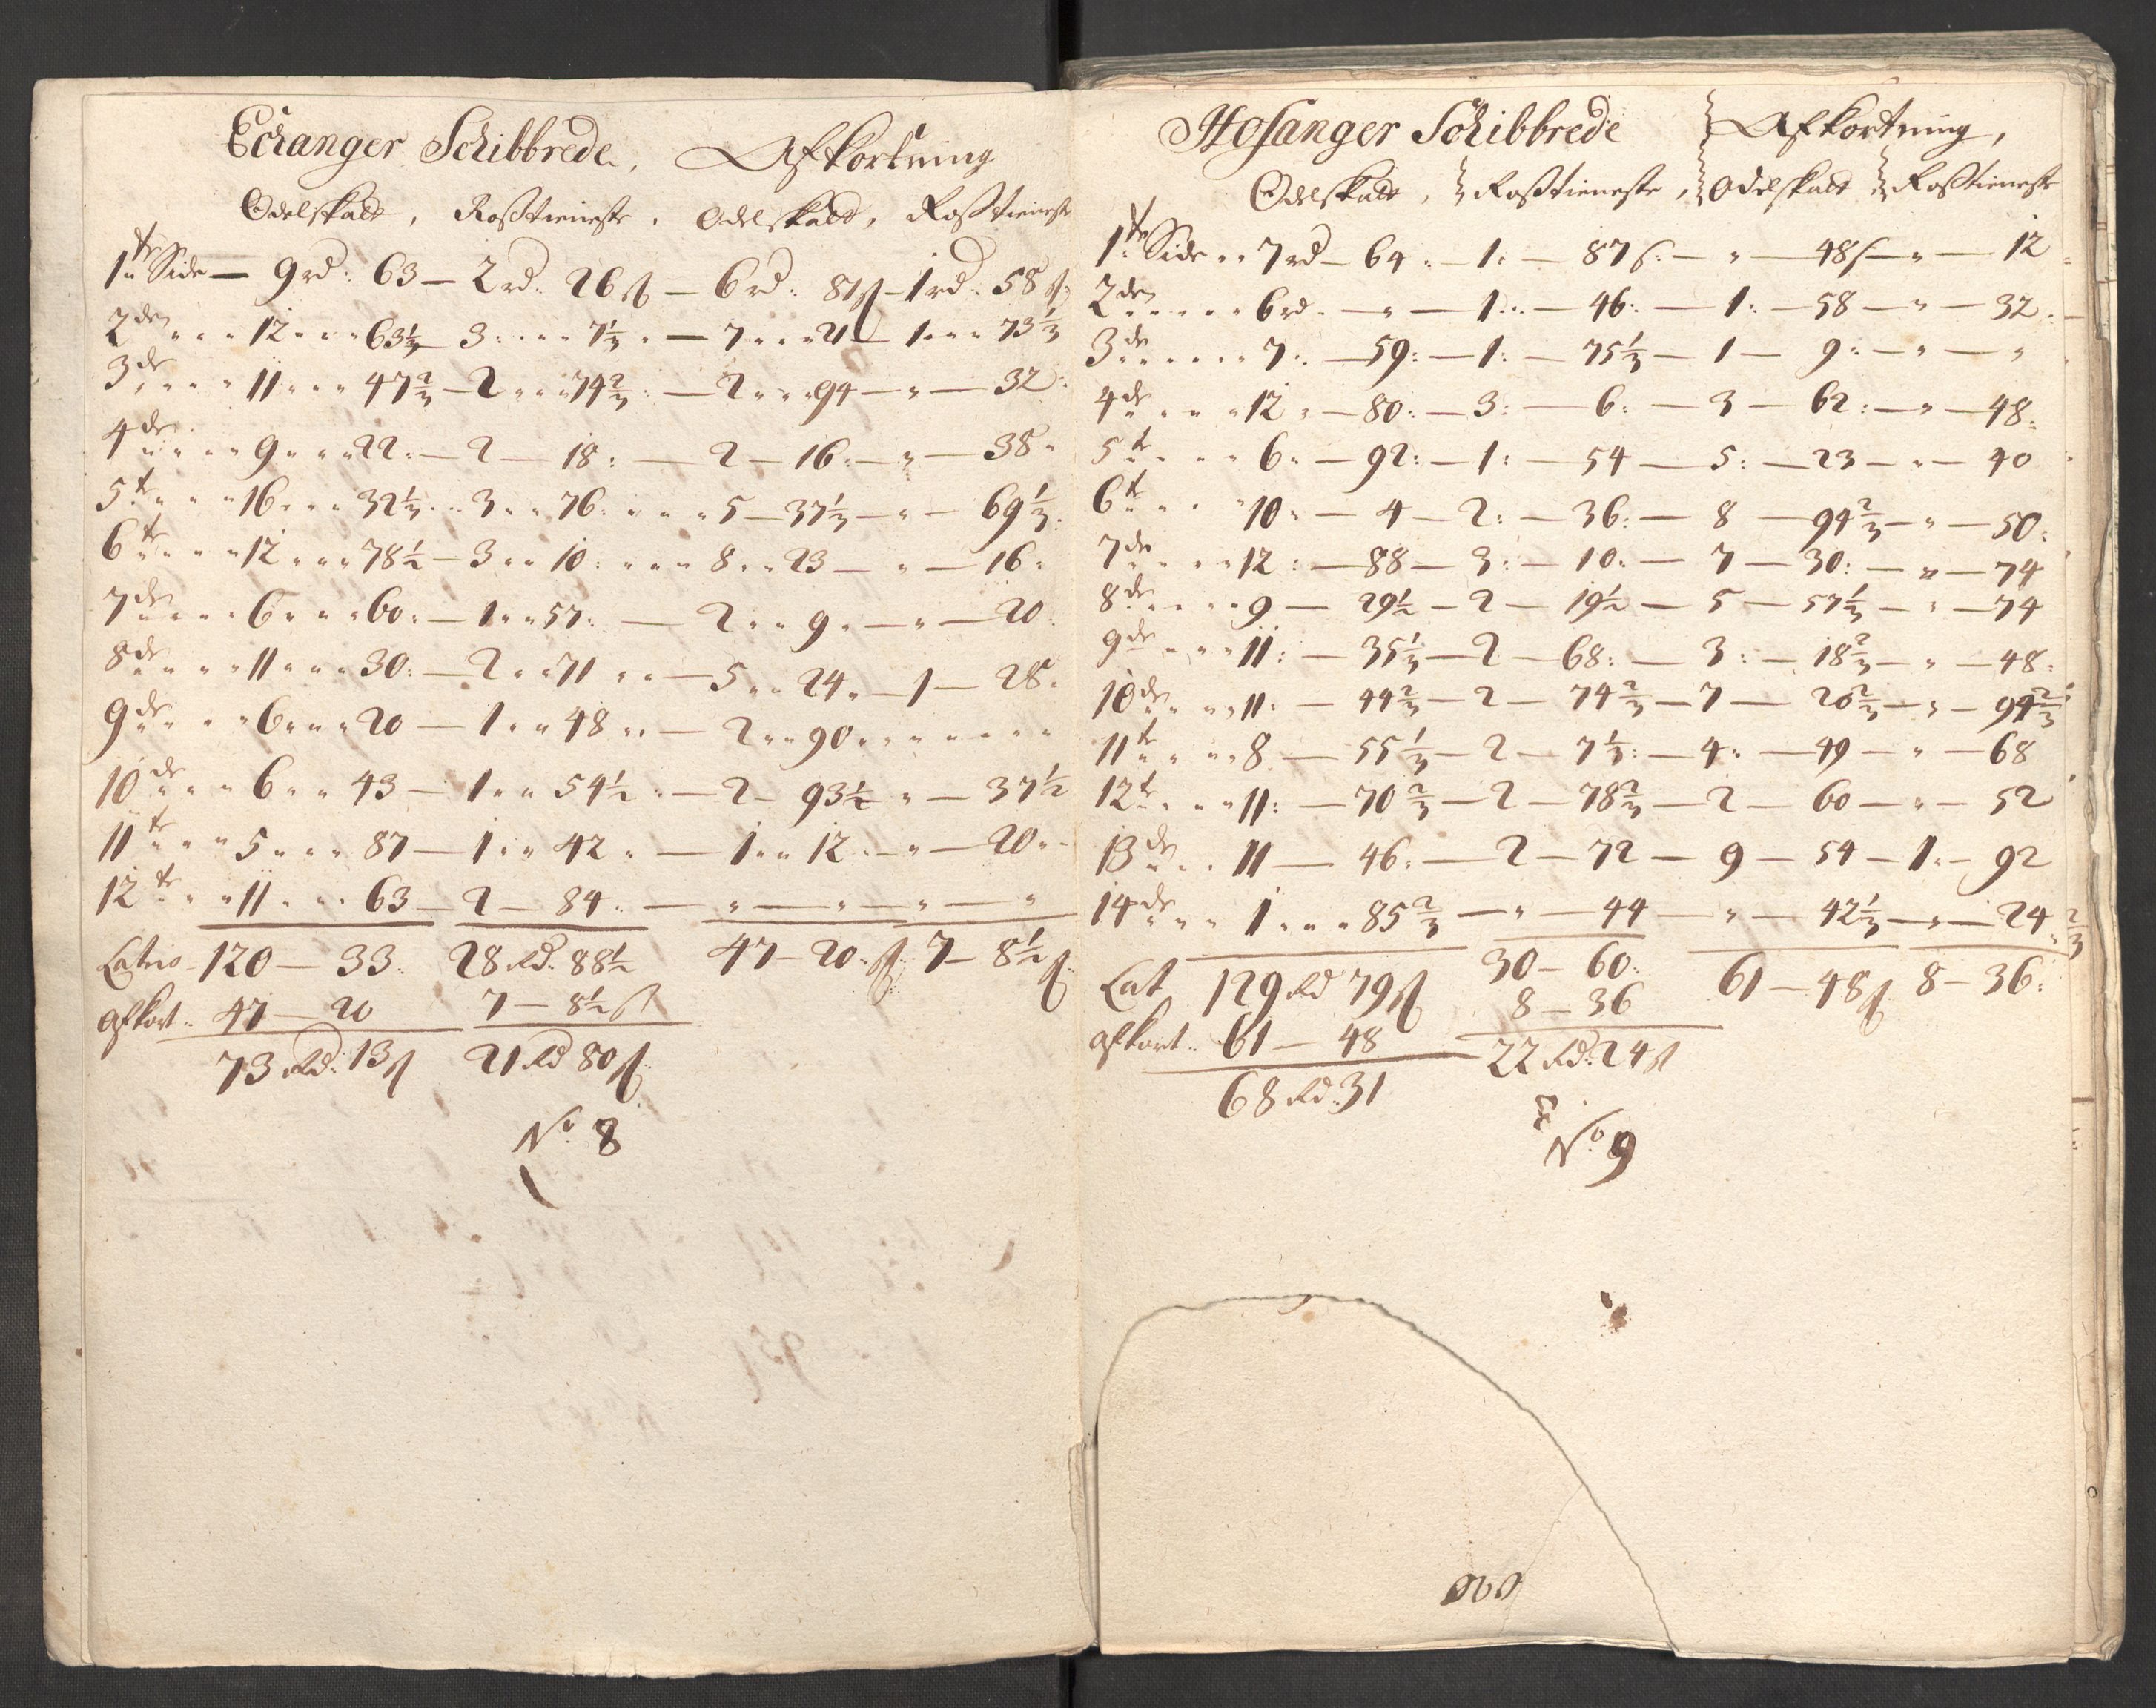 Echanger Schibbrede, Afkortning
Odelskatt, Rosstieneste, Odelskatt, Rosstieneste
1te Side — 9 rd: 63 — 2 rd. 26 ß — 6 rd: 81 ß — 1 rd. 58 ß
2den 12 63⅓ — 3 7⅓ — 7 21 — 1 73⅓
3de 11 47⅔ — 2 74⅔ — 2 94 — " — 32
4de 9 22: — 2 — 18: — 2 — 16: — " — 38
5te 16 32⅓ 3 76 5 — 37⅓ — " — 69⅓
6te 12 78½ — 3 10 8 23 — " — 16
7de 6 60: — 1 57: — 2 9 — " — 20
8de 11 30: — 2 71 — 5 24 — 1 — 28
9de 6 20 — 1 48 — 2 90
10de 6 43 — 1 54½ — 2 — 93½ " — 37½
11te 5 87 — 1 42 — 1 12 — " — 20
12te 11 63 — 2 — 84: — " — " — " — "
Latus 120 — 33: 28 Rd. 88½ 47 — 20 ß 7 — 8½ ß
afkort: 47 — 20 7 — 8½ ß
73 Rd: 13 ß 21 Rd 80 ß
No. 8
Hosanger Schibbrede Afkortning,
Odelskatt, Rosstieneste, Odelskatt Rosstieneste
1te Side 7 rd — 64: — 1: — 87 ß: — " — 48 ß — " — 12
2den 6 rd. — " — 1: — 46: — 1: — 58 — " — 32
3de 7: — 59: — 1: — 75⅓ — 1 — 9: — " — "
4de 12 — 80: — 3: — 6: — 3 — 62: — " — 48:
5te 6: — 92: — 1: — 54 — 5: — 23 — " — 40
6te 10: — 4 — 2: — 36: — 8 — 94⅔ — " — 50:
7de 12: — 88 — 3: — 10: — 7 — 30: — " — 74
8de 9 — 29½ — 2 — 19½ — 5 — 57⅓ — " — 74
9de 11: — 35⅓ — 2 — 68: — 3: — 18⅔ — " — 48:
10de 11: — 44⅔ — 2 — 74⅔ — 7 — 26⅔ — " — 94⅔
11te 8 — 55⅓ — 2 — 7⅓: — 4: — 49 — " — 68
12te 11: — 70⅔ — 2 — 78⅔ — 2 — 60 — " — 52
13de 11 — 46: — 2 — 72 — 9 — 54 — 1: — 92
14de 1 85⅔ — " — 44 — " — 42⅓ — " — 24⅔
Lat 129 Rd 79 ß 30 — 60: 61 — 48 ß 8 — 36:
afkort: 61 — 48 8 — 36
68 Rd: 31 22 Rd: 24 ß
No. 9